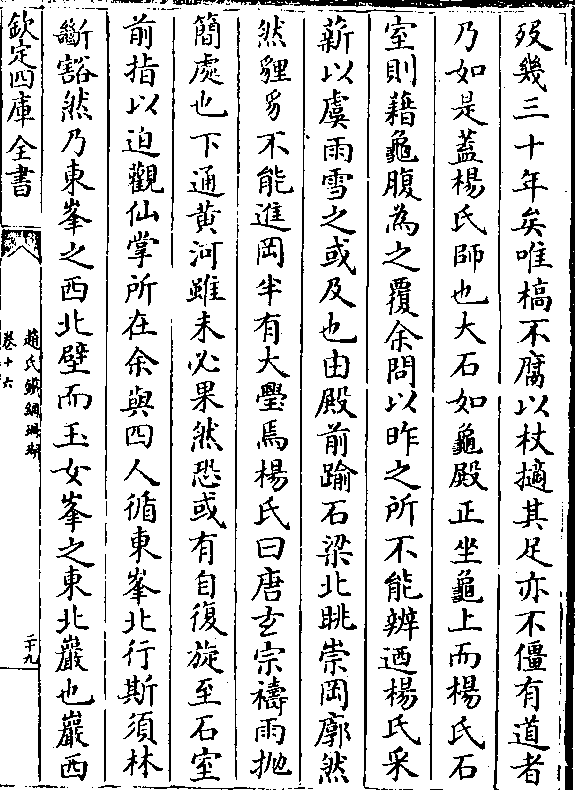 歿幾三十年矣唯槁不腐以杖擿其足亦不僵有道者
乃如是蓋楊氏師也大石如龜殿正坐龜上而楊氏石
室則藉龜腹為之覆余問以昨之所不能辨迺楊氏采
薪以虞雨雪之或及也由殿前踰石梁北眺崇岡廓然
然貍豸不能進岡半有大壘焉楊氏曰唐玄宗禱雨抛
簡處也下通黄河雖未必果然恐或有自復旋至石室
前指以迫觀仙掌所在余與四人循東峯北行斯須林
斷豁然乃東峯之西北壁而玉女峯之東北巖也巖西
欽定四庫全書
趙氏鐵網珊瑚
卷十六
二十九